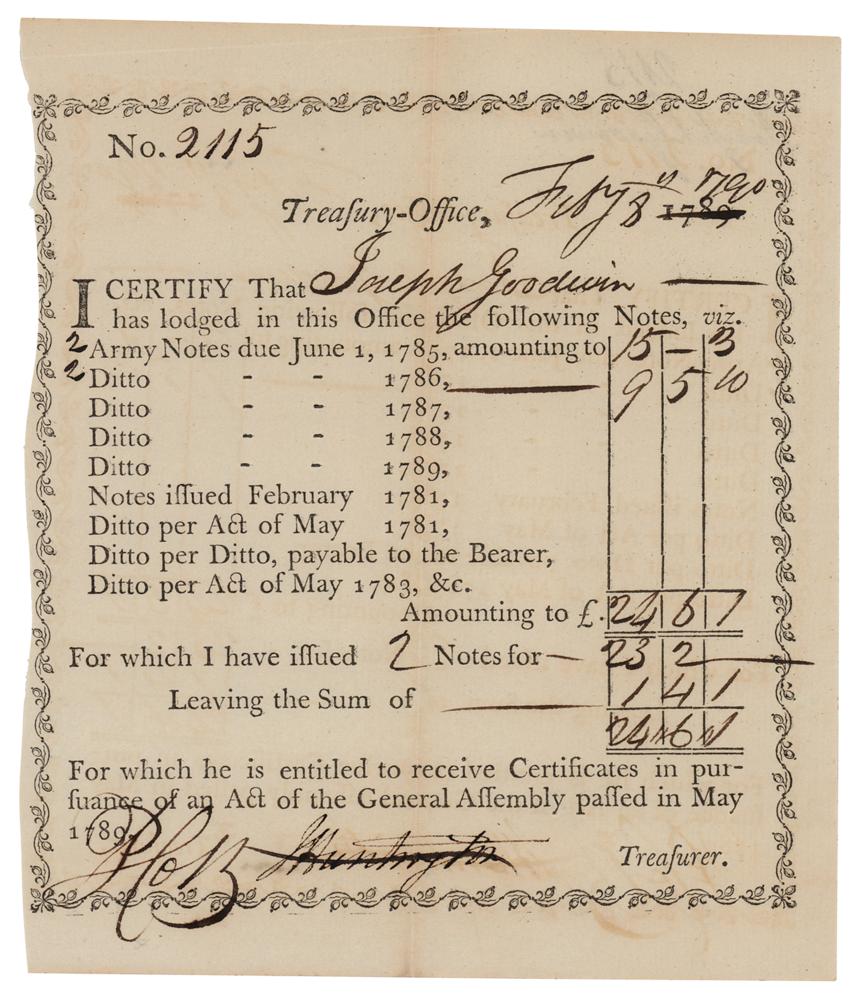 No. 2115
Treaſury-Office, Feby 8th 1790 1789
I CERTIFY That Joseph Goodwin
has lodged in this Office the following Notes, viz.
2 Army Notes due June 1, 1785, amounting to 15 — 3
2 Ditto - - 1786, 9 5 10
Ditto - - 1787,
Ditto - - 1788,
Ditto - - 1789,
Notes iſſued February 1781,
Ditto per Act of May 1781,
Ditto per Ditto, payable to the Bearer,
Ditto per Act of May 1783, &c.
Amounting to £. 24 6 1
For which I have iſſued 2 Notes for — 23 2 —
Leaving the Sum of 1 4 1
24 6 1
For which he is entitled to receive Certificates in pur-
ſuance of an Act of the General Aſſembly paſſed in May
1789.
JHuntington Treaſurer.